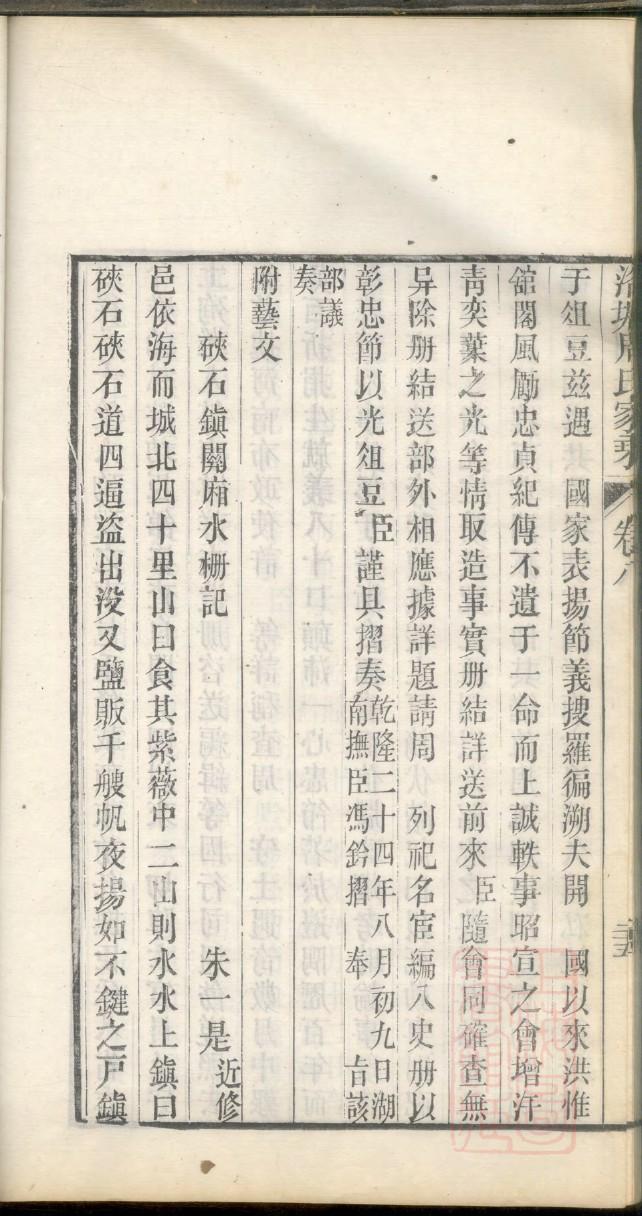 洛塘周氏家乘
卷八
二十五
于俎豆兹遇 國家表揚節義搜羅徧溯夫開 國以來洪惟
舘閣風勵忠貞紀傳不遺于一命而上誠軼事昭宣之會增汗
靑奕葉之光等情取造事實册結詳送前來臣隨會同確查無
异除册結送部外相應據詳題請周 列祀名宦編入史册以
彰忠節以光俎豆臣謹具摺奏乾隆二十四年八月初九日湖
南撫臣馮鈐摺奉 旨該
部議
奏
附藝文
硤石鎭關廂水柵記 朱一是近修
邑依海而城北四十里山曰食其紫薇中二山則水水上鎭曰
硤石硤石道四逼盗出没又鹽販千艘帆夜揚如不鍵之戸鎭